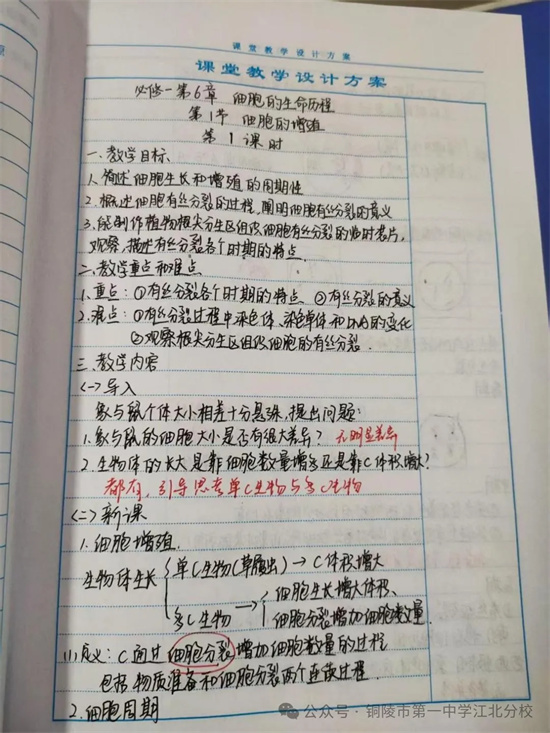 课堂教学设计方案
课堂教学设计方案
必修一第6章 细胞的生命历程
第1节 细胞的增殖
第1课时
一、教学目标
1.简述细胞生长和增殖的周期性
2.概述细胞有丝分裂的过程,阐明细胞有丝分裂的意义
3.能制作植物根尖分生区组织细胞有丝分裂的临时装片,
观察、描述有丝分裂各个时期的特点.
二、教学重点和难点
1.重点:①有丝分裂各个时期的特点 ②有丝分裂的意义
2.难点:①有丝分裂过程中染色体、染色单体和DNA的变化
②观察根尖分生区组织细胞的有丝分裂.
三、教学内容
(一)导入
象与鼠个体大小相差十分悬殊,提出问题:
1.象与鼠的细胞大小是否有很大差异? 无明显差异
2.生物体的长大是靠细胞数量增多还是靠C体积增大?
都有,引导思考单C生物与多C生物
(二)新课
1.细胞增殖
单C生物(草履虫)→C体积增大
生物体生长
细胞生长增大体积、
多C生物→
细胞分裂增加细胞数量.
(1)定义:C通过细胞分裂增加细胞数量的过程
包括物质准备和细胞分裂两个连续过程.
2.细胞周期
公众号·铜陵市第一中学江北分校